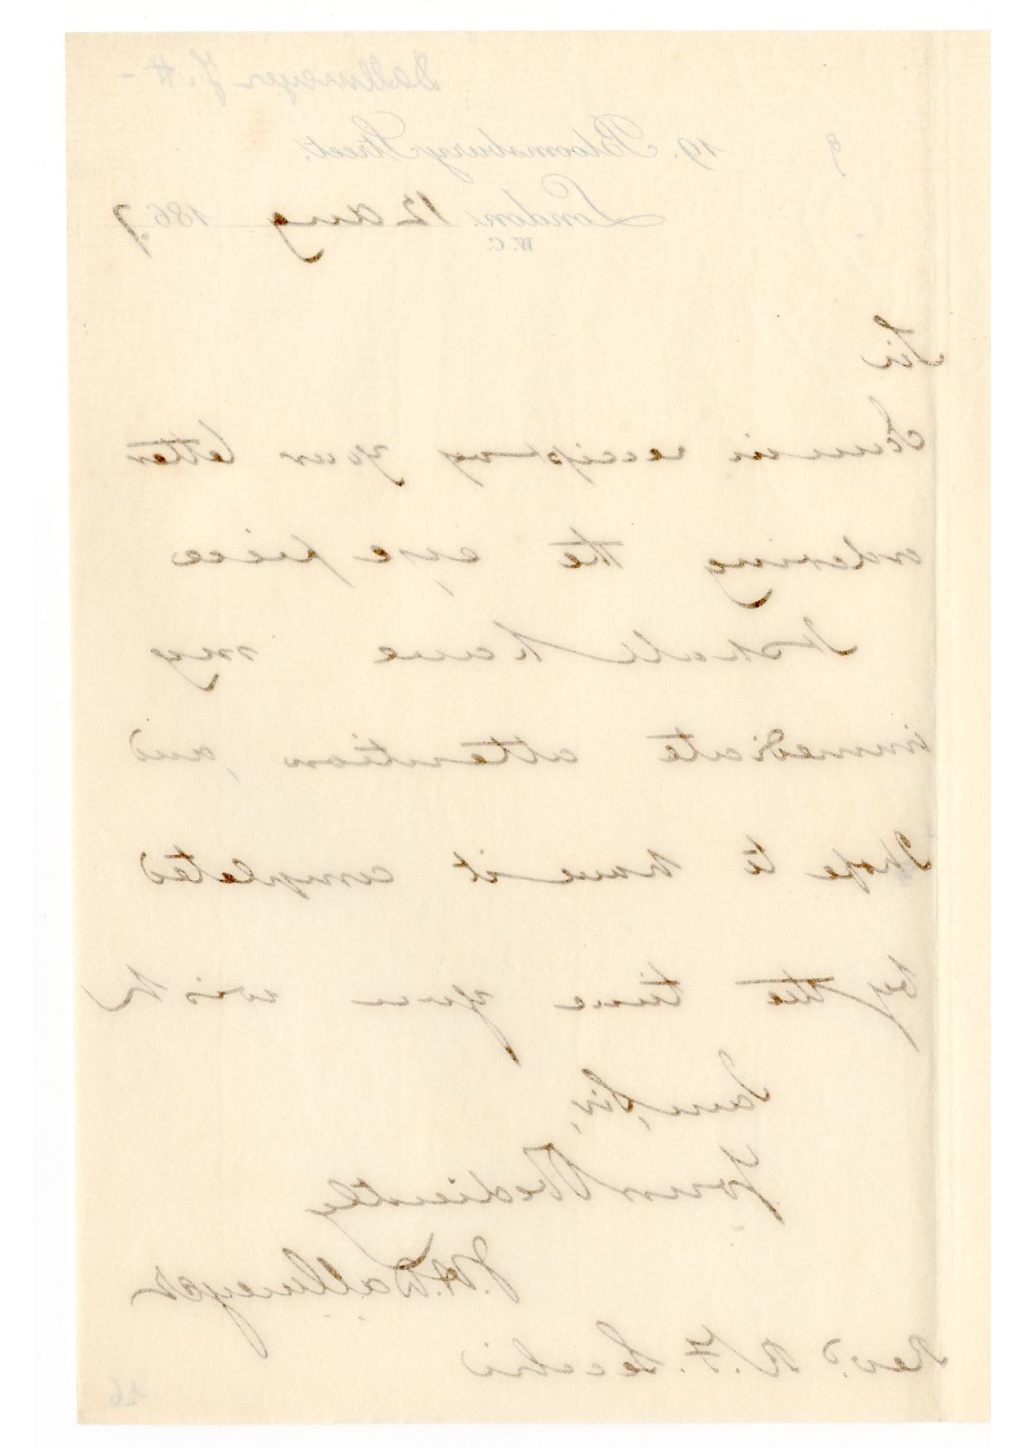 Dallmeyer J. H -
9 19. Bloomsbury Street.
London. 12 Aug 1867
W.C.
Sir
I am in receipt of your letter
ordering the eye piece
It shall have my
immediate attention, and
I hope to have it completed
by the time you wish
I am, Sir,
Yours Obediently
J. H. Dallmeyer
Revd. R. F. Secchi